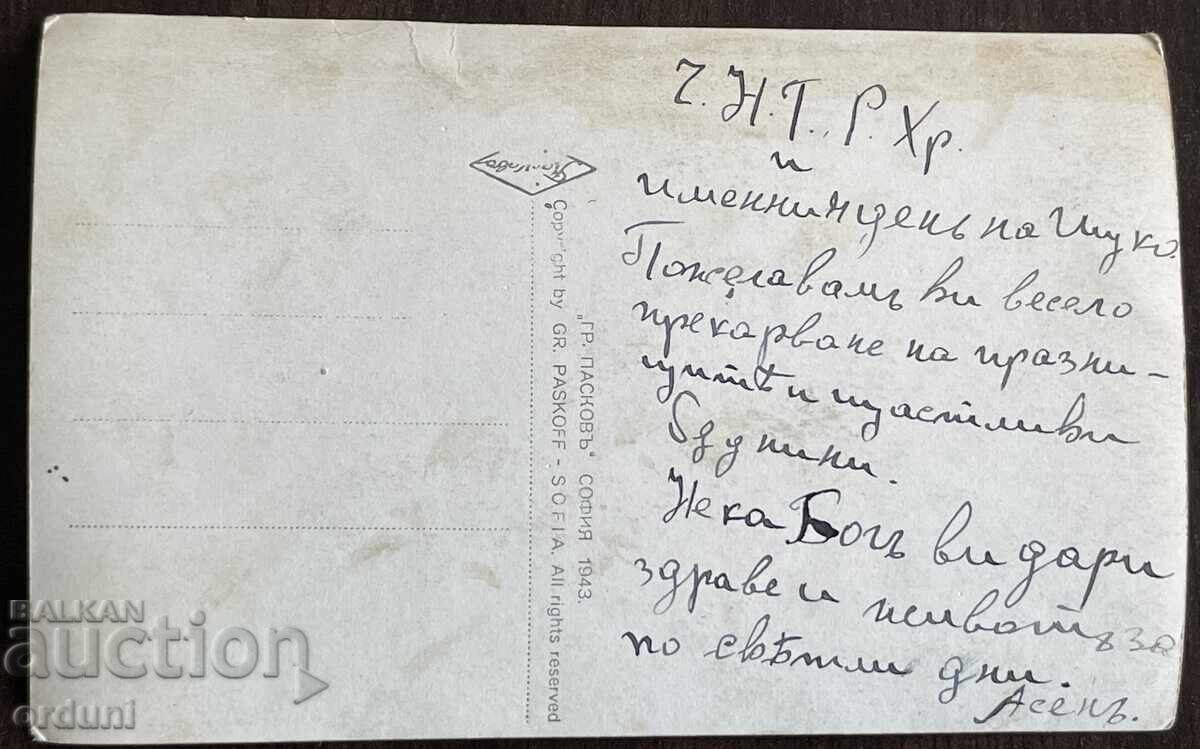 Ч.Н.Г., Р.Хр.
и
именния день на Цуко.
Пожелавамъ ви весело
прекарване на празни-
цитѣ и щастливи
бѫднини.
Нека Богъ ви дари
здраве и животъ за
по свѣтли дни.
Асенъ.
Copyright by GR. PASKOFF - SOFIA. All rights reserved
„ГР. ПАСКОВЪ" СОФИЯ 1943.
BALKAN
auction
orduni